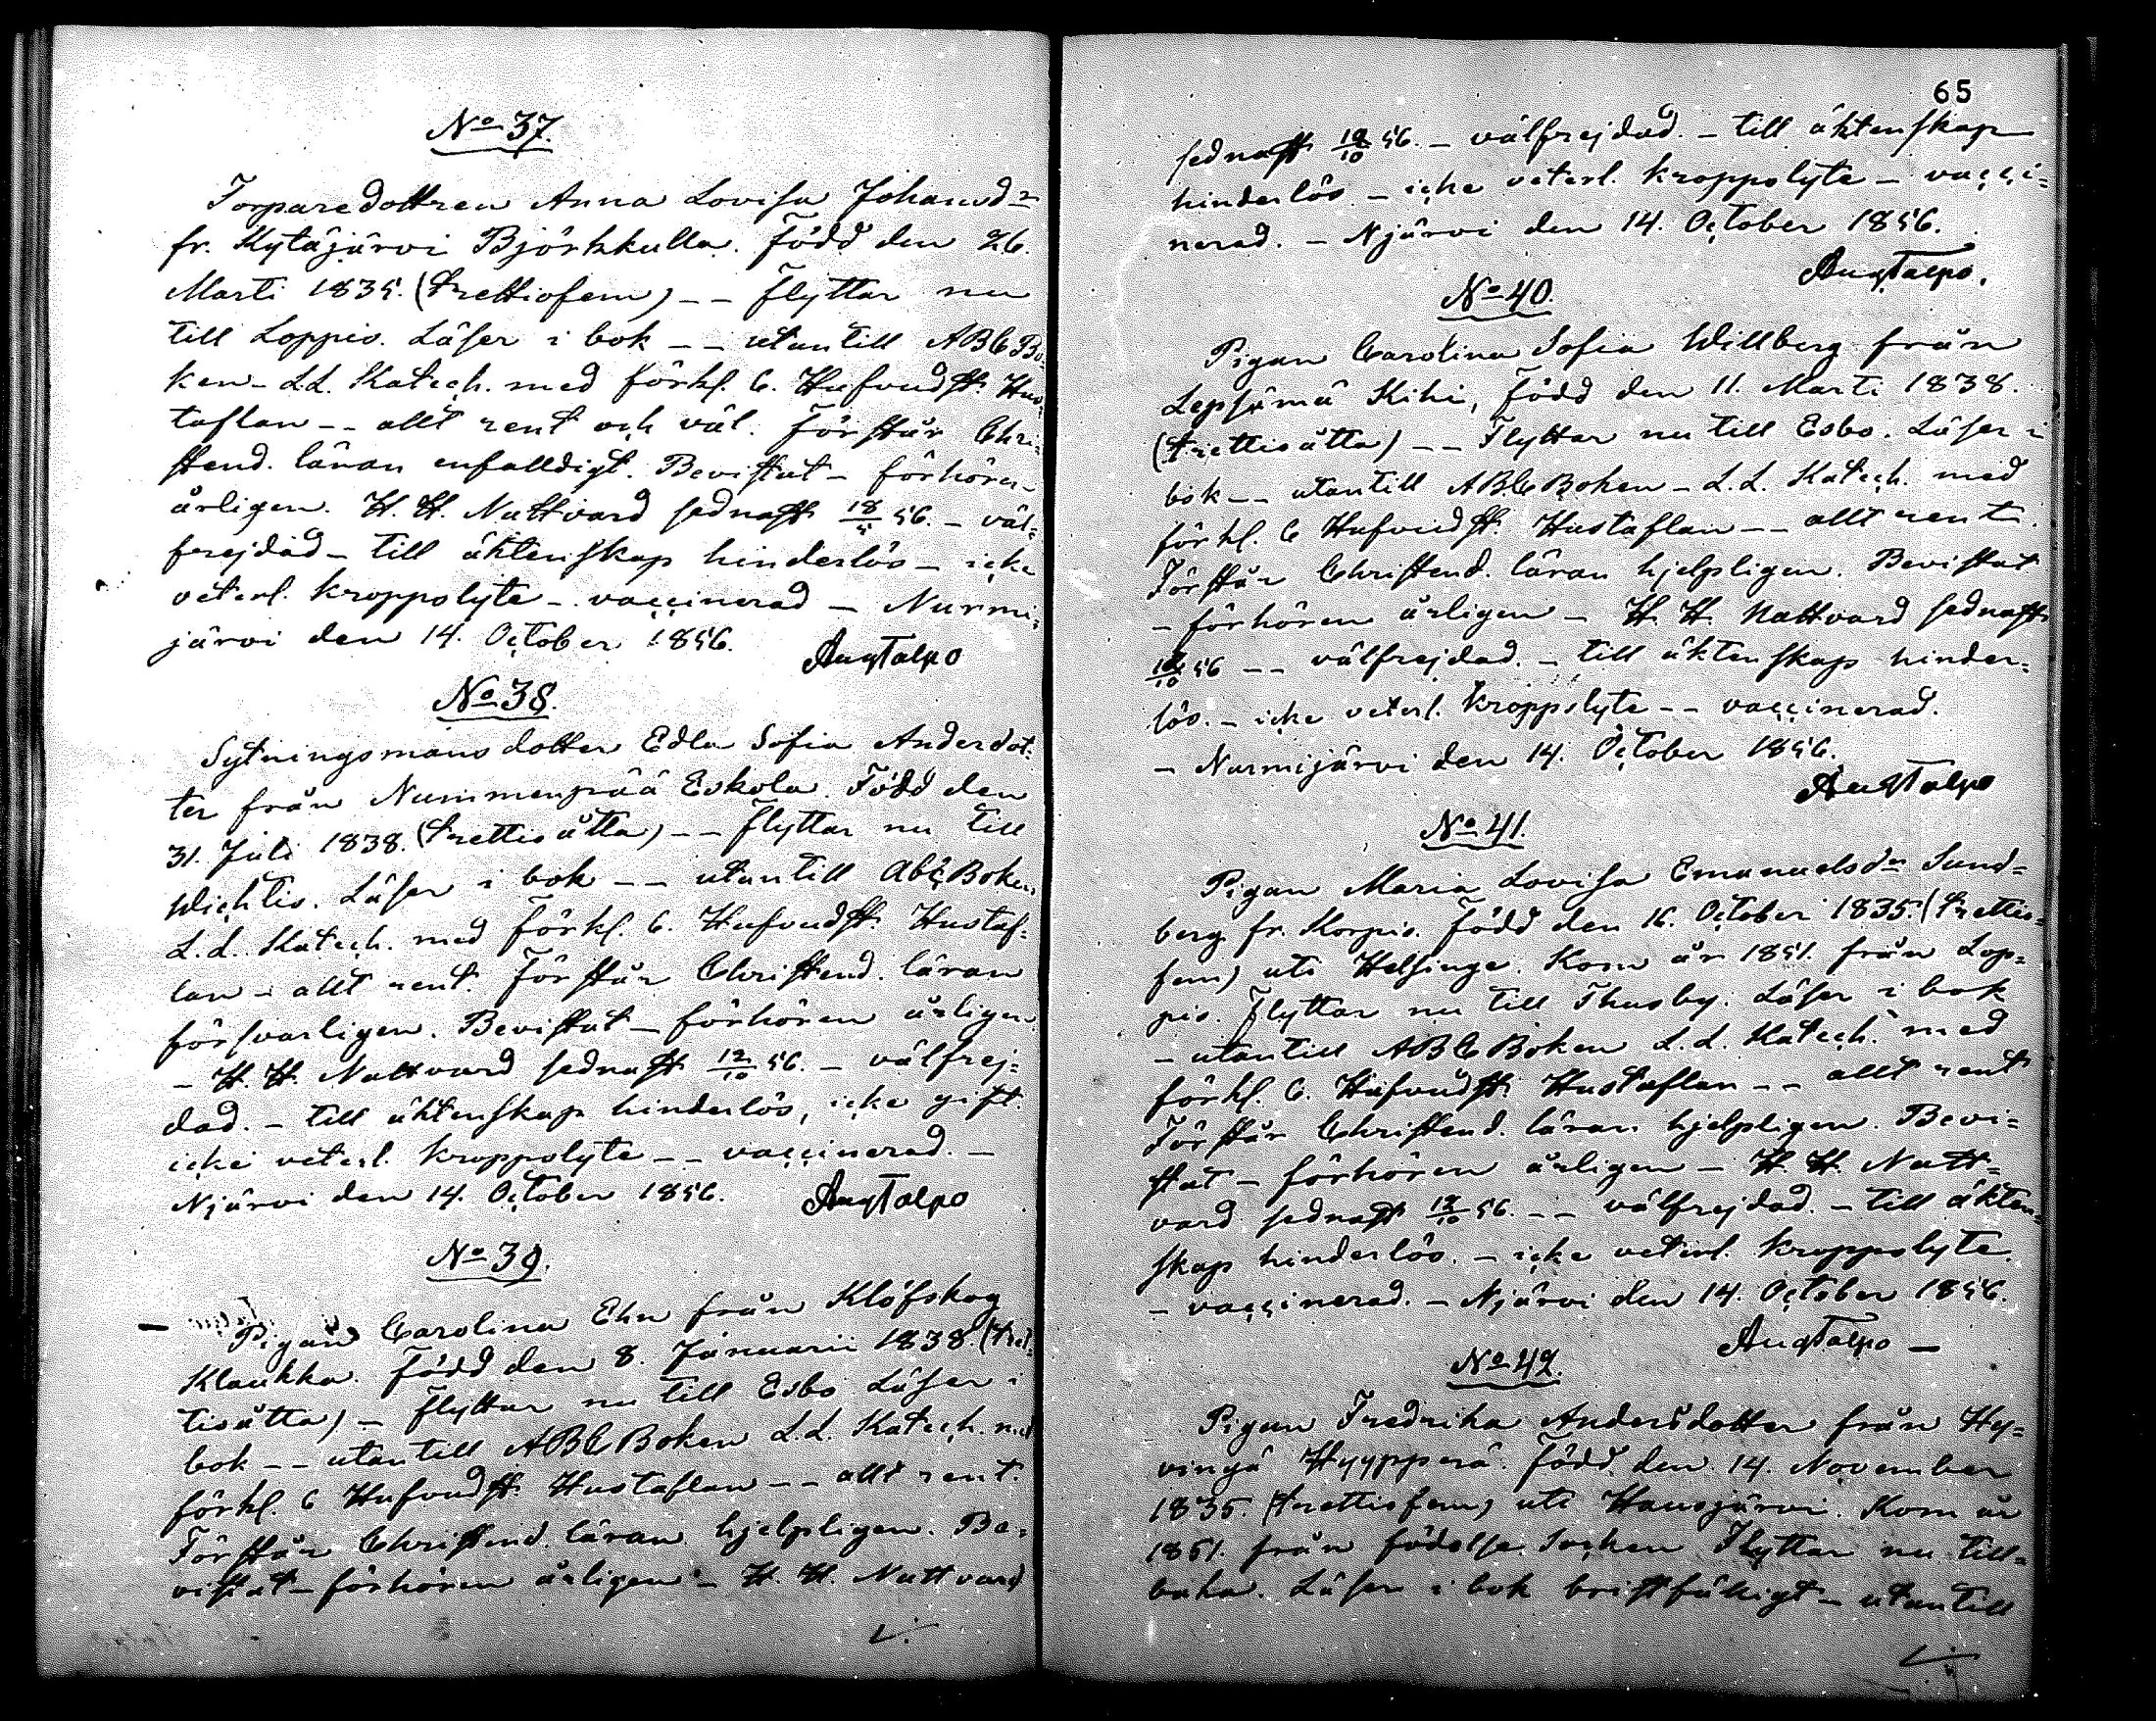 No 37.
Torparedottren Anna Lovisa Johansdr
fr. Kytäjärvi Björkkulla. Född den 26.
Marti 1835. (trettiofem) -- Flyttar nu
till Loppis. Läser i bok -- utantill ABC Bo-
ken - L.L. Katech. med förkl. C. Hufvudst. Hus-
taflan -- allt rent och väl. Förstår Chri-
stend. läran enfalldigt. Bevistat - förhören
årligen. H. H. Nattvard sednast 18/5 56. - väl-
frejdad - till äktenskap hinderlös - icke
veterl. kroppslyte - vaccinerad - Nurmi-
järvi den 14. October 1856. AugTalpo
No 38.
Sytningsmans dotter Edla Sofia Andersdot-
ter från Nummenpää Eskola. Född den
31. Juli 1838. (trettioåtta) -- Flyttar nu till
Wichtis. Läser i bok -- utantill Abc Boken
L.L. Katech. med förkl. C. Hufvudst. Hustaf-
lan - allt rent. Förstår Christend. läran
försvarligen. Bevistat - förhören årligen
- H. H. Nattvard sednast 12/10 56. - välfrej-
dad. - till äktenskap hinderlös, icke gift.
icke veterl. kroppslyte -- vaccinerad. -
Njärvi den 14. October 1856. AugTalpo
No 39.
Pigan Carolina Ehn från Klöfskog
Klaukka. Född den 8. Januarii 1838. (tret-
tioåtta) - Flyttar nu till Esbo Läser i
bok -- utantill ABC Boken L.L. Katech. med
förkl. C Hufvudst. Hustaflan -- allt rent.
Förstår Christend. läran hjelpligen. Be-
vistat - förhören årligen - H. H. Nattvard
65
sednast 12/10 56. - välfrejdad. - till äktenskap
hinderlös. - icke veterl. kroppslyte - vacci-
nerad. - Njärvi den 14. October 1856.
AugTalpo.
No 40.
Pigan Carolina Sofia Willberg från
Lepsämä Kihi, född den 11. Marti 1838.
(trettioåtta) -- Flyttar nu till Esbo. Läser i
bok -- utantill ABC Boken - L.L. Katech. med
förkl. C Hufvudst. Hustaflan -- allt rent.
Förstår Christend. läran hjelpligen. Bevistat
- förhören årligen - H. H. Nattvard sednast
12/10 56 -- välfrejdad. - till äktenskap hinder-
lös. - icke veterl. kroppslyte -- vaccinerad.
- Nurmijärvi den 14. October 1856.
AugTalpo
No 41.
Pigan Maria Lovisa Emanuelsdr Sund-
berg fr. Korpis. Född den 16. October 1835. (trettio-
fem) uti Helsinge. Kom år 1851. från Lop-
pis. Flyttar nu till Thusby. Läser i bok
- utantill ABC Boken L.L. Katech. med
förkl. C. Hufvudst. Hustaflan -- allt rent
Förstår Christend. läran hjelpligen. Bevi-
stat - förhören årligen - H. H. Natt-
vard sednast 12/10 56. -- välfrejdad. - till äkten-
skap hinderlös. - icke veterl. kroppslyte
- vaccinerad. - Njärvi den 14. October 1856.
AugTalpo -
No 42.
Pigan Fredrika Andersdotter från Hy-
vingä Hyypperä. Född den 14. November
1835. (trettiofem) uti Hausjärvi. Kom år
1851. från födelse Socken Flyttar nu till-
baka. Läser i bok bristfälligt - utantill